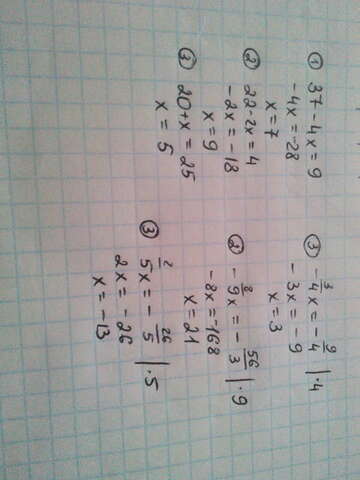 ① 37 - 4x = 9
-4x = -28
x = 7
② 22 - 2x = 4
-2x = -18
x = 9
③ 20 + x = 25
x = 5
③ -3/4 x = -9/4 | · 4
-3x = -9
x = 3
② -8/9 x = -56/3 | · 9
-8x = -168
x = 21
③ 2/5 x = -26/5 | · 5
2x = -26
x = -13